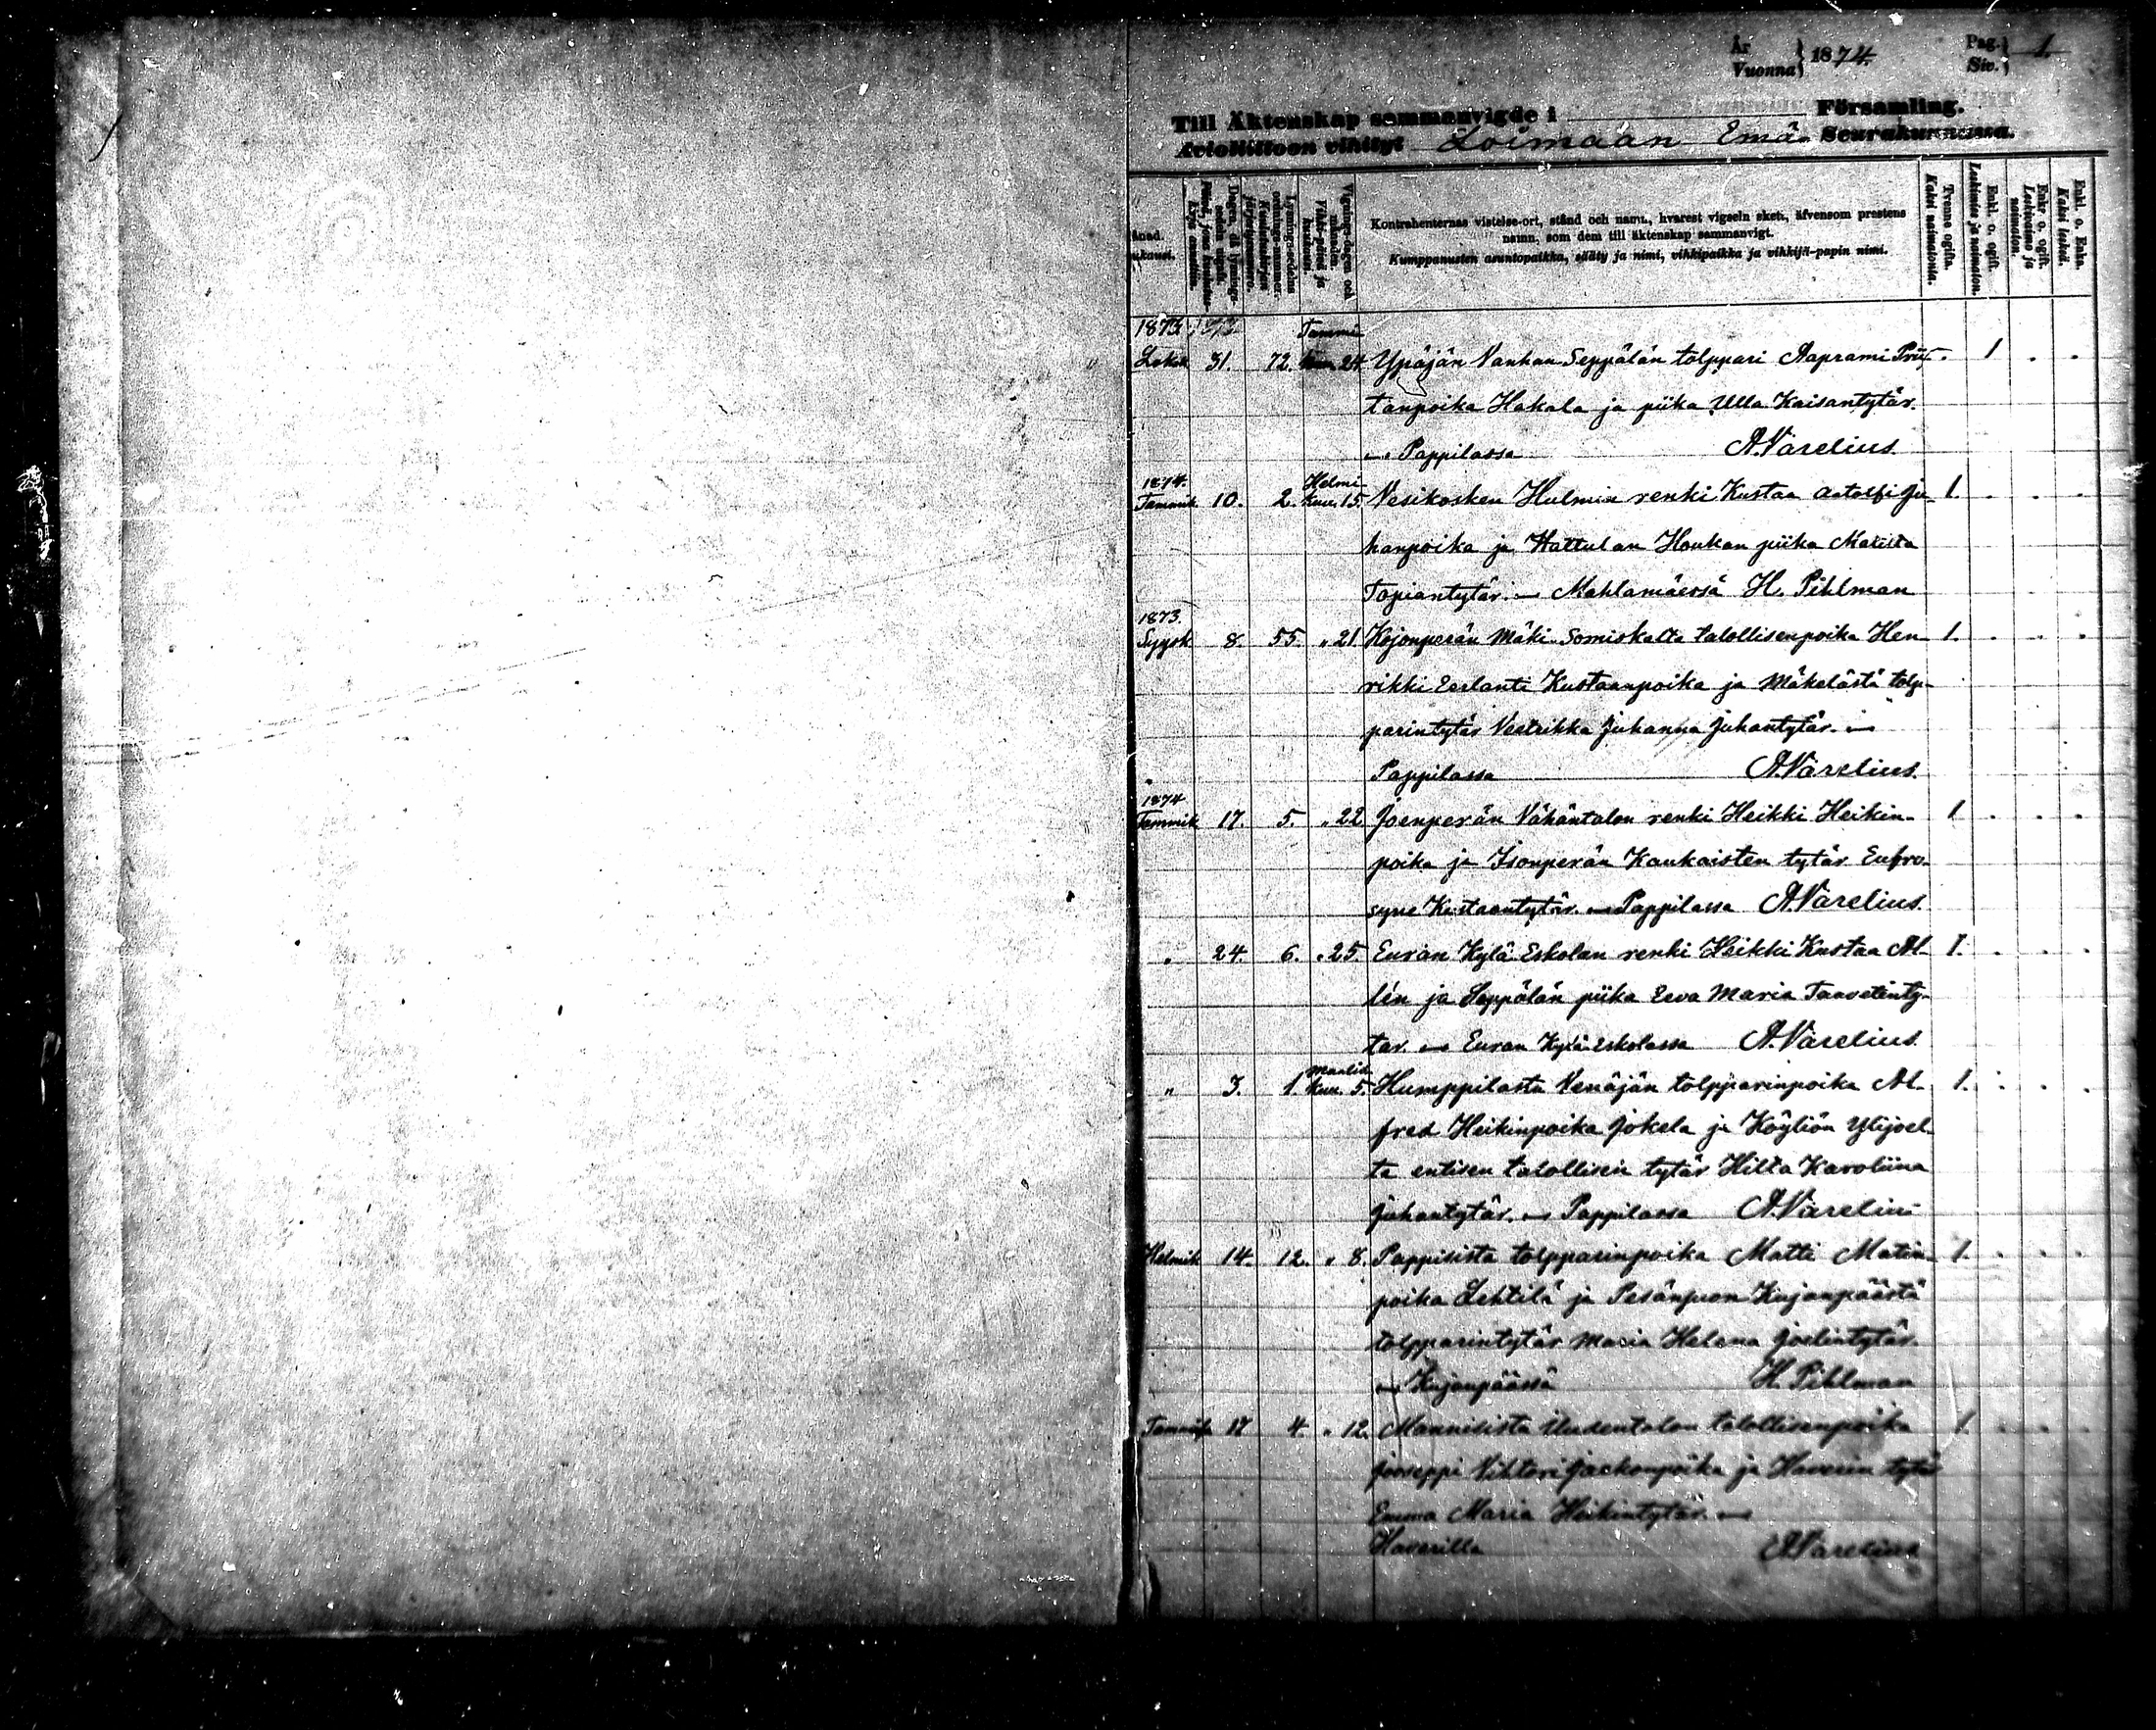 År
Vuonna } 1874. Pag.
Siv. } 1.
Till Äktenskap sammanvigde i Församling.
Avioliittoon vihityt Loimaan Emä- Seurakunnassa.
Kontrahenternas vistelse-ort, stånd och namn, hvarest vigseln skett, äfvensom prestens
namn, som dem till äktenskap sammanvigt.
Kumppanusten asuntopaikka, sääty ja nimi, vihkipaikka ja vihkijä-papin nimi.
Tvenne ogifta.
Kaksi naimatonta.
Enkl. o. ogift.
Leskimies ja naimaton.
Enkr o. ogift.
Leskivaimo ja
naimaton.
Enkl o. Enka.
Kaksi leskeä.
1873 Tammi
Lokak 31. 72. 24 Ypäjän Vanhan Seppälän tolppari Aaprami Priit- . 1 . .
tanpoika Hakala ja piika Ulla Kaisantytär.
— Pappilassa A. Varelius.
1874. Helmi
Tammik. 10. 2. kuu. 15. Vesikosken Hulmin renki Kustaa Aatolfi Ju- 1. . . .
hanpoika ja Hattulan Houkan piika Matilta
Topiantytär. — Mahlamäessä H. Pihlman
1873.
Syysk 8. 55. „ 21 Kojonperän Mäki-Somiskalta talollisenpoika Hen- 1. . . .
rikki Eerlanti Kustaanpoika ja Mäkelästä tolp-
parintytär Veetrikka Juhanna Juhantytär. —
Pappilassa A. Varelius.
1874
Tammik 17. 5. „ 22 Joenperän Vähäntalon renki Heikki Heikin- 1 . . .
poika ja Isonperän Kaukaisten tytär Eufro-
syne Kustaantytär. — Pappilassa A. Varelius.
„ 24. 6. „ 25. Euran Kylä-Eskolan renki Heikki Kustaa Al- 1. . . .
lén ja Seppälän piika Eeva Maria Taavetinty-
tär. — Euran Kylä-Eskolassa A. Varelius.
Maalis
„ 3. 1. kuu. 5. Humppilasta Venäjän tolpparinpoika Al- 1. . . .
fred Heikinpoika Jokela ja Köyliön Ylijoel-
ta entisen talollisen tytär Hilta Karoliina
Juhantytär. — Pappilassa A. Varelius
Helmik 14. 12. „ 8. Pappisista tolpparinpoika Matti Matin- 1. . . .
poika Lehtilä ja Pesänsuon Kujanpäästä
tolpparintytär Maria Helena Joelintytär.
— Kujanpäässä H. Pihlman
Tammik 17 4. „ 12. Mannilista Uudentalon talollisenpoika 1. . . .
Jooseppi Vihtori Jaakonpoika ja Haverin tytär
Emma Maria Heikintytär. —
Haverilla A. Varelius